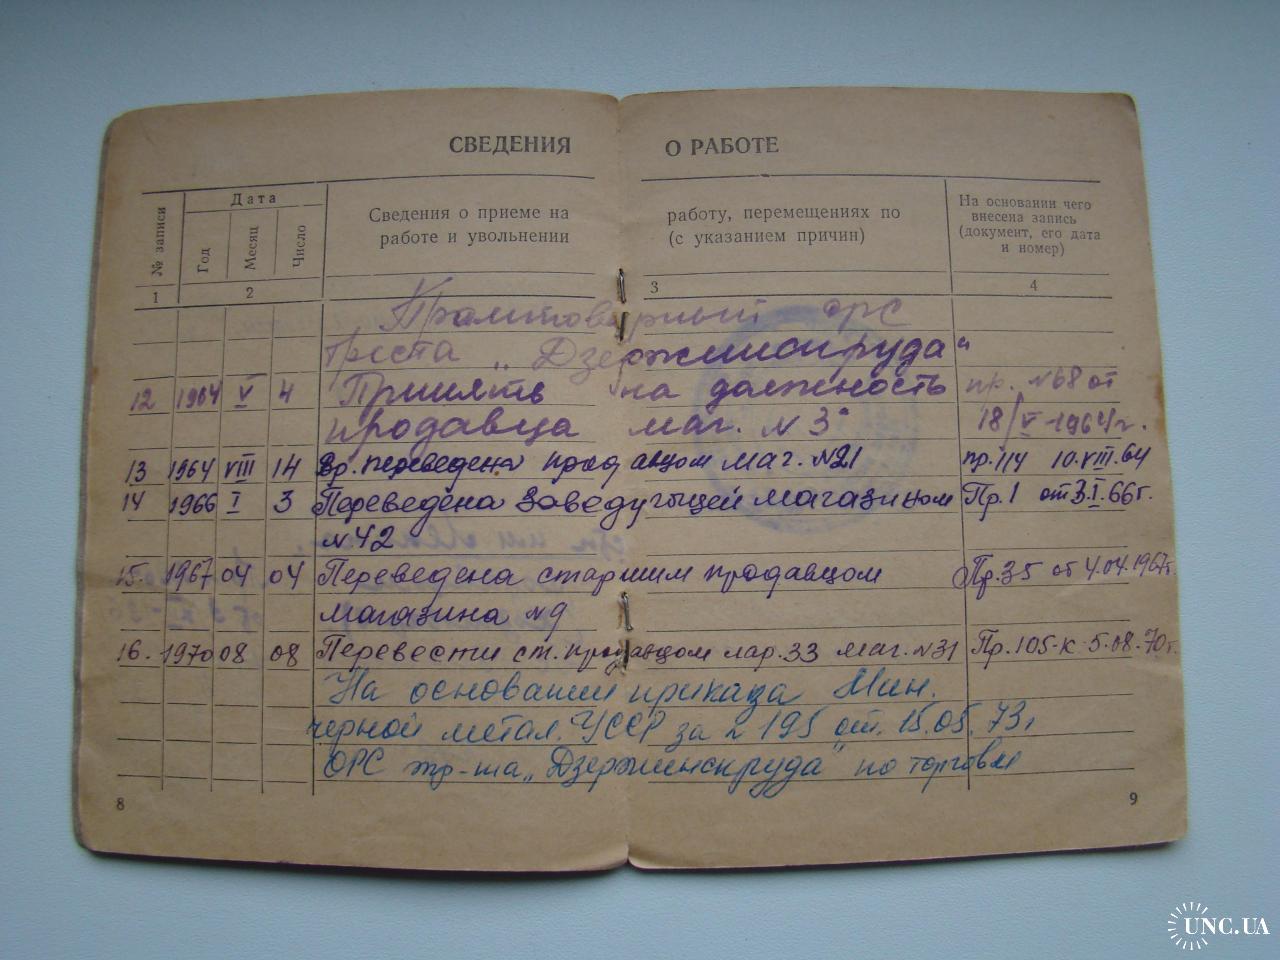 СВЕДЕНИЯ О РАБОТЕ
№ записи
Дата
Год
Месяц
Число
Сведения о приеме на работу, перемещениях по
работе и увольнении (с указанием причин)
На основании чего
внесена запись
(документ, его дата
и номер)
1 2 3 4
Промтоварный орс
треста "Дзержинскруда"
12 1964 V 4 Принять на должность пр. №68 от
продавца маг. N 3 18/V-1964г.
13 1964 VIII 14 Вр. переведена продавцом маг. N21 пр. 114 10.VIII.64
14 1966 I 3 Переведена заведующей магазином Пр.1 от 3.I.66г.
N42
15. 1967 04 04 Переведена старшим продавцом Пр.35 от 4.04.1967г.
магазина N9
16. 1970 08 08 Перевести ст. продавцом лар.33 маг. N31 Пр.105-к 5.08.70г.
На основании приказа Мин.
черной метал. УССР за 195 от. 15.05.73г
ОРС тр-та "Дзержинскруда" по торговле
8
9
UNC.UA